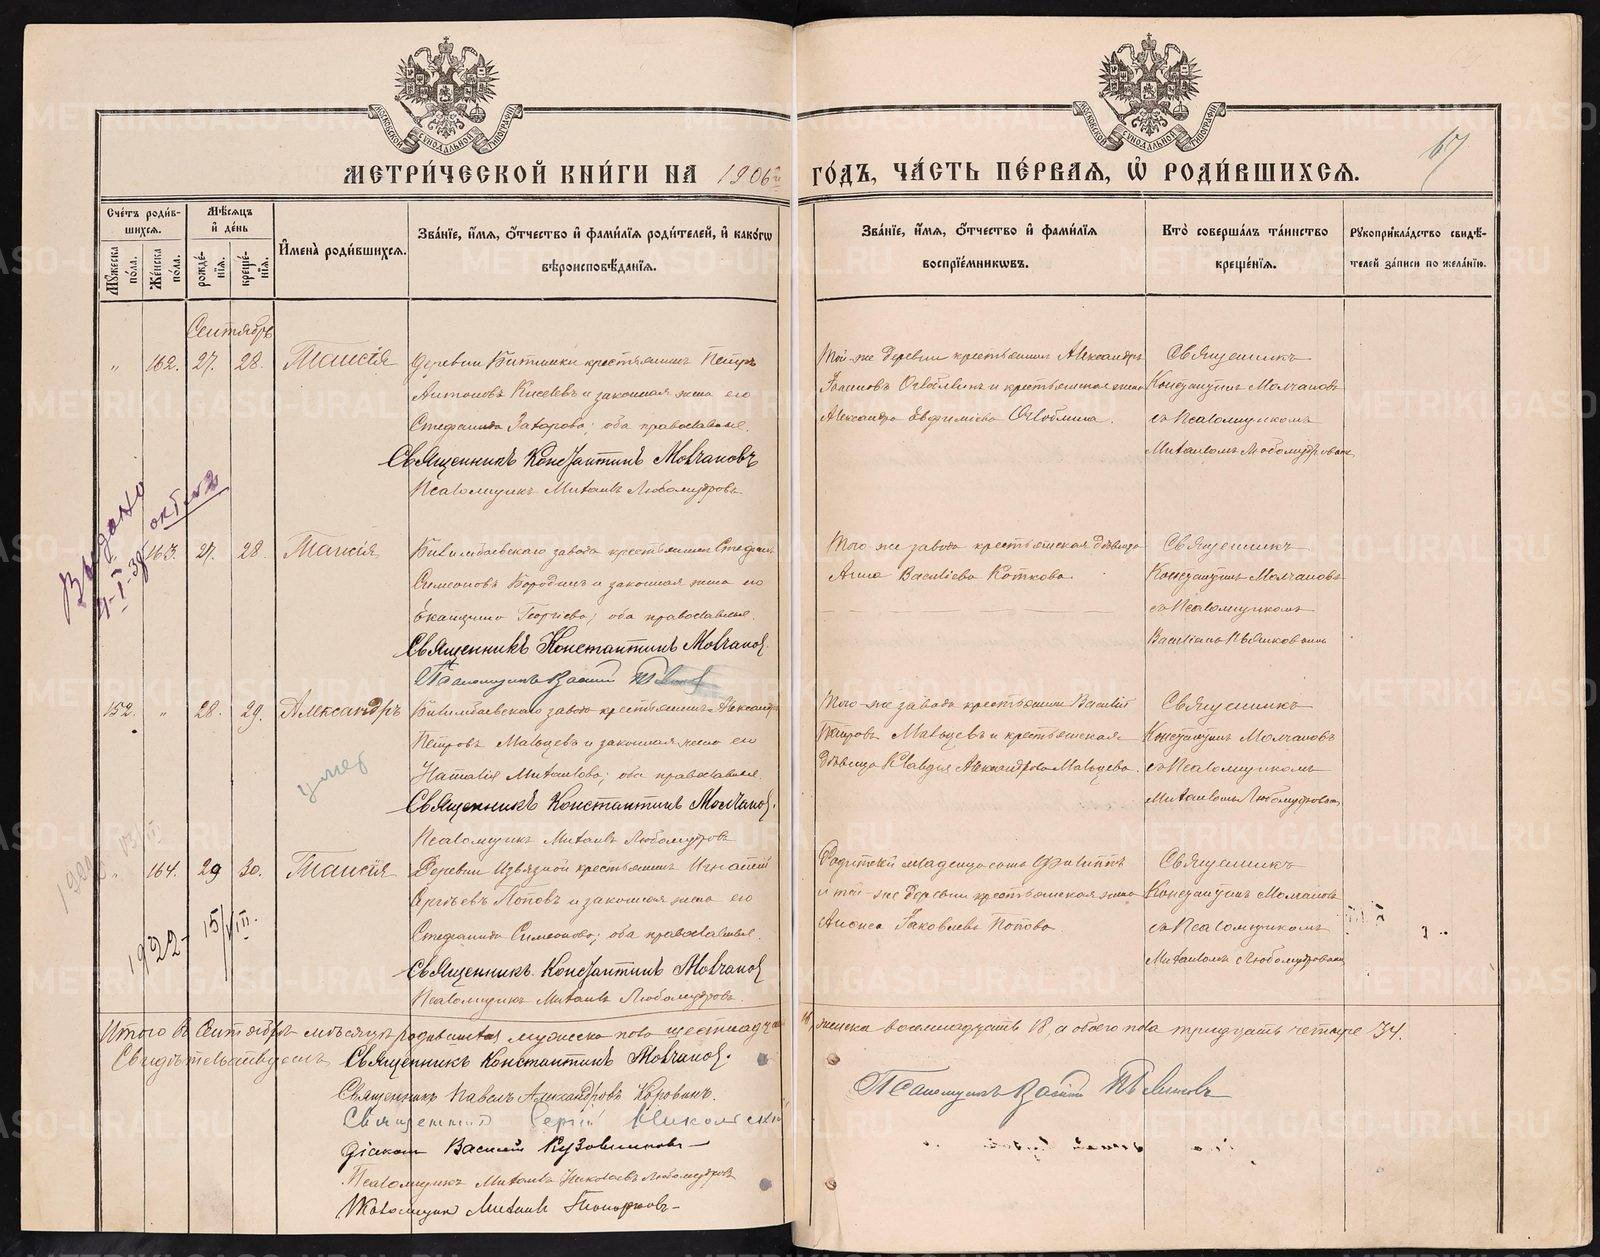 МЕТРИ́ЧЕСКОЙ КНИ́ГИ НА 1906й ГО́ДЪ, ЧА́СТЬ ПЕ́РВАѦ, Ѡ҆ РОДИ́ВШИХСѦ.
67
Сче́тъ роди́в-
шихсѧ.
Мѣ́сѧцъ
и҆ де́нь
Мꙋ́жеска
по́ла.
Же́нска
по́ла.
рожде́-
нїѧ.
креще́-
нїѧ.
И҆мена̀ роди́вшихсѧ.
Зва́нїе, и҆́мѧ, ѻ҆́тчество и҆ фами́лїѧ роди́телей, и҆ како́гѡ
вѣроисповѣ́данїѧ.
Зва́нїе, и҆́мѧ, ѻ҆́тчество и҆ фами́лїѧ
воспрїе́мникѡвъ.
Кто̀ соверша́лъ та́инство
креще́нїѧ.
Рꙋкоприкла́дство свидѣ́-
телей за́писи по жела́нїю.
Сентябрь
" 162. 27. 28. Таисія
крестьянинъ Петръ
Антоновъ Киселевъ и законная жена его
Стефанида Захарова; оба православные.
Священникъ Константинъ Молчановъ
Псаломщикъ Михаилъ Любомудровъ
Той-же деревни крестьянинъ Александръ
и крестьянская жена
Александра Евфиміева
Священникъ
Константинъ Молчановъ
съ Псаломщикомъ
Михаиломъ Любомудровымъ
Выдано
4-I-38
163. 27. 28. Таисія
Билимбаевскаго завода крестьянинъ Стефанъ
Симеоновъ Бородинъ и законная жена его
Екатерина Георгіева; оба православные.
Священникъ Константинъ Молчановъ.
Псаломщикъ Василій
Того-же завода крестьянская дѣвица
Анна Василіева Коткова.
Священникъ
Константинъ Молчановъ
съ Псаломщикомъ
152. " 28. 29. Александръ
умер
Билимбаевскаго завода крестьянинъ Александръ
Петровъ Мальцевъ и законная жена его
Наталія Михаилова; оба православные.
Священникъ Константинъ Молчановъ.
Псаломщикъ Михаилъ Любомудровъ
Того-же завода крестьянинъ Василій
Петровъ Мальцевъ и крестьянская
дѣвица Клавдія Александрова Мальцева.
Священникъ
Константинъ Молчановъ
съ Псаломщикомъ
Михаиломъ Любомудровымъ
" 164. 29 30. Таисія
1922 - 15/VIII.
Деревни Извязной крестьянинъ Игнатій
Сергіевъ Поповъ и законная жена его
Стефанида Симеонова; оба православные.
Священникъ Константинъ Молчановъ
Псаломщикъ Михаилъ Любомудровъ.
младенца сынъ Филиппъ
и той-же деревни крестьянская жена
Аниса Іаковлева Попова.
Священникъ
Константинъ Молчановъ
съ Псаломщикомъ
Михаиломъ Любомудровымъ
Итого въ Сентябрѣ мѣсяцѣ родившихся мужеска пола шестнадцать 16, женска восемнадцать 18, а обоего пола тридцать четыре 34.
Свидѣтельствуемъ Священникъ Константинъ Молчановъ.
Священникъ Павелъ Александровъ Коровинъ.
Священникъ Сергій Никольскій
Діаконъ Василій Кузовниковъ
Псаломщикъ Михаилъ Николаевъ Любомудровъ
Псаломщикъ Михаилъ Топорковъ
Псаломщикъ Василій
METRIKI.GASO-URAL.RU